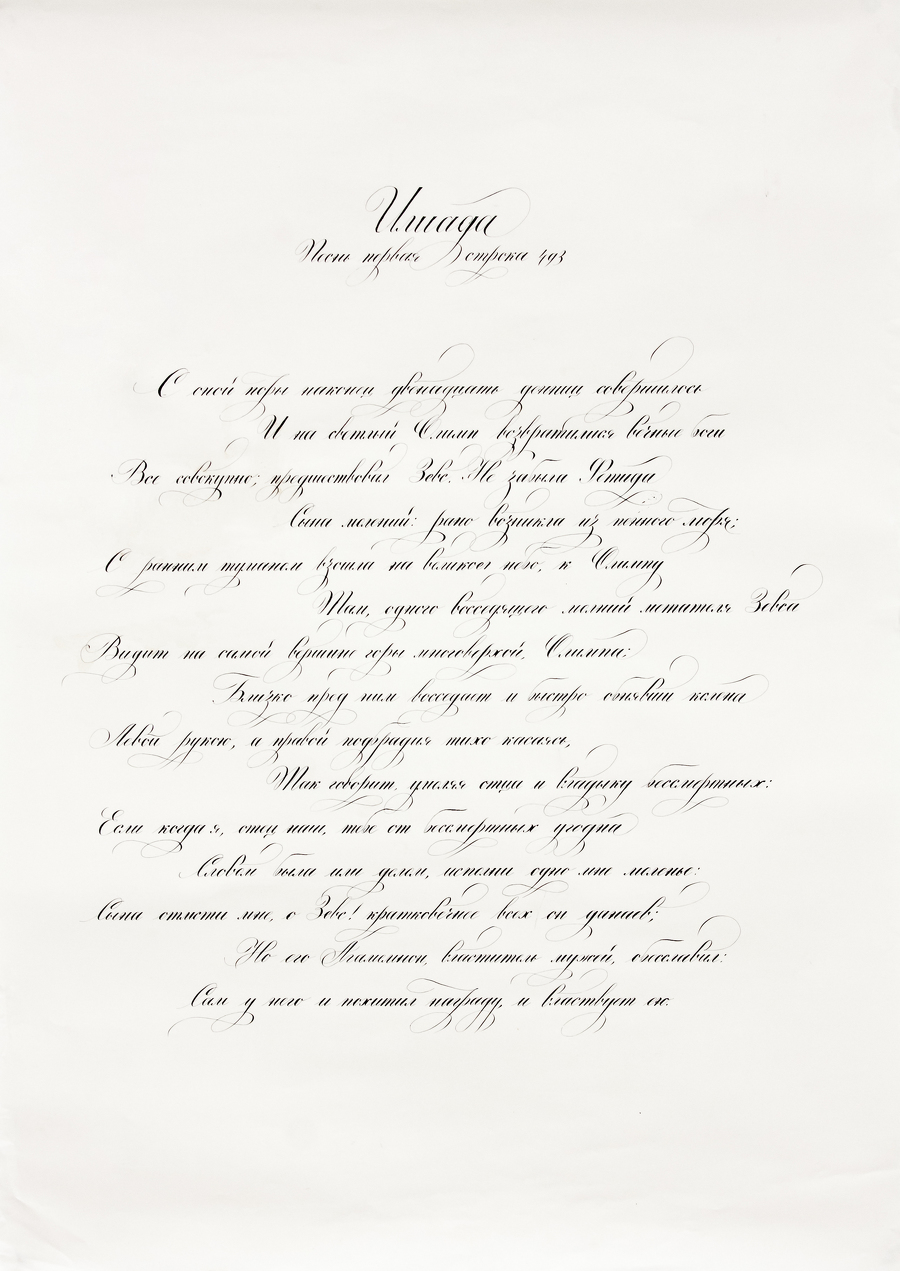 Илиада
Песнь первая строка 493
С оной поры наконец двенадцать денниц совершилось
И на светлый Олимп возвратилися вечные боги
Все совокупно; предшествовал Зевс. Не забыла Фетида
Сына молений: рано возникла из пенного моря;
С ранним туманом взошла на великое небо, к Олимпу
Там, одного восседящего молний метателя Зевса
Видит на самой вершине горы многоверхой, Олимпа;
Близко пред ним восседает и быстро обнявши колена
Левой рукою, а правой подбрадия тихо касаясь,
Так говорит, умоляя отца и владыку бессмертных:
Если когда я, отец наш, тебе от бессмертных угодна
Словом была или делом, исполни одно мне моленье:
Сына отмсти мне, о Зевс! кратковечнее всех он данаев;
Но его Агамемнон, властитель мужей, обесславил:
Сам у него и похитил награду, и властвует ею.